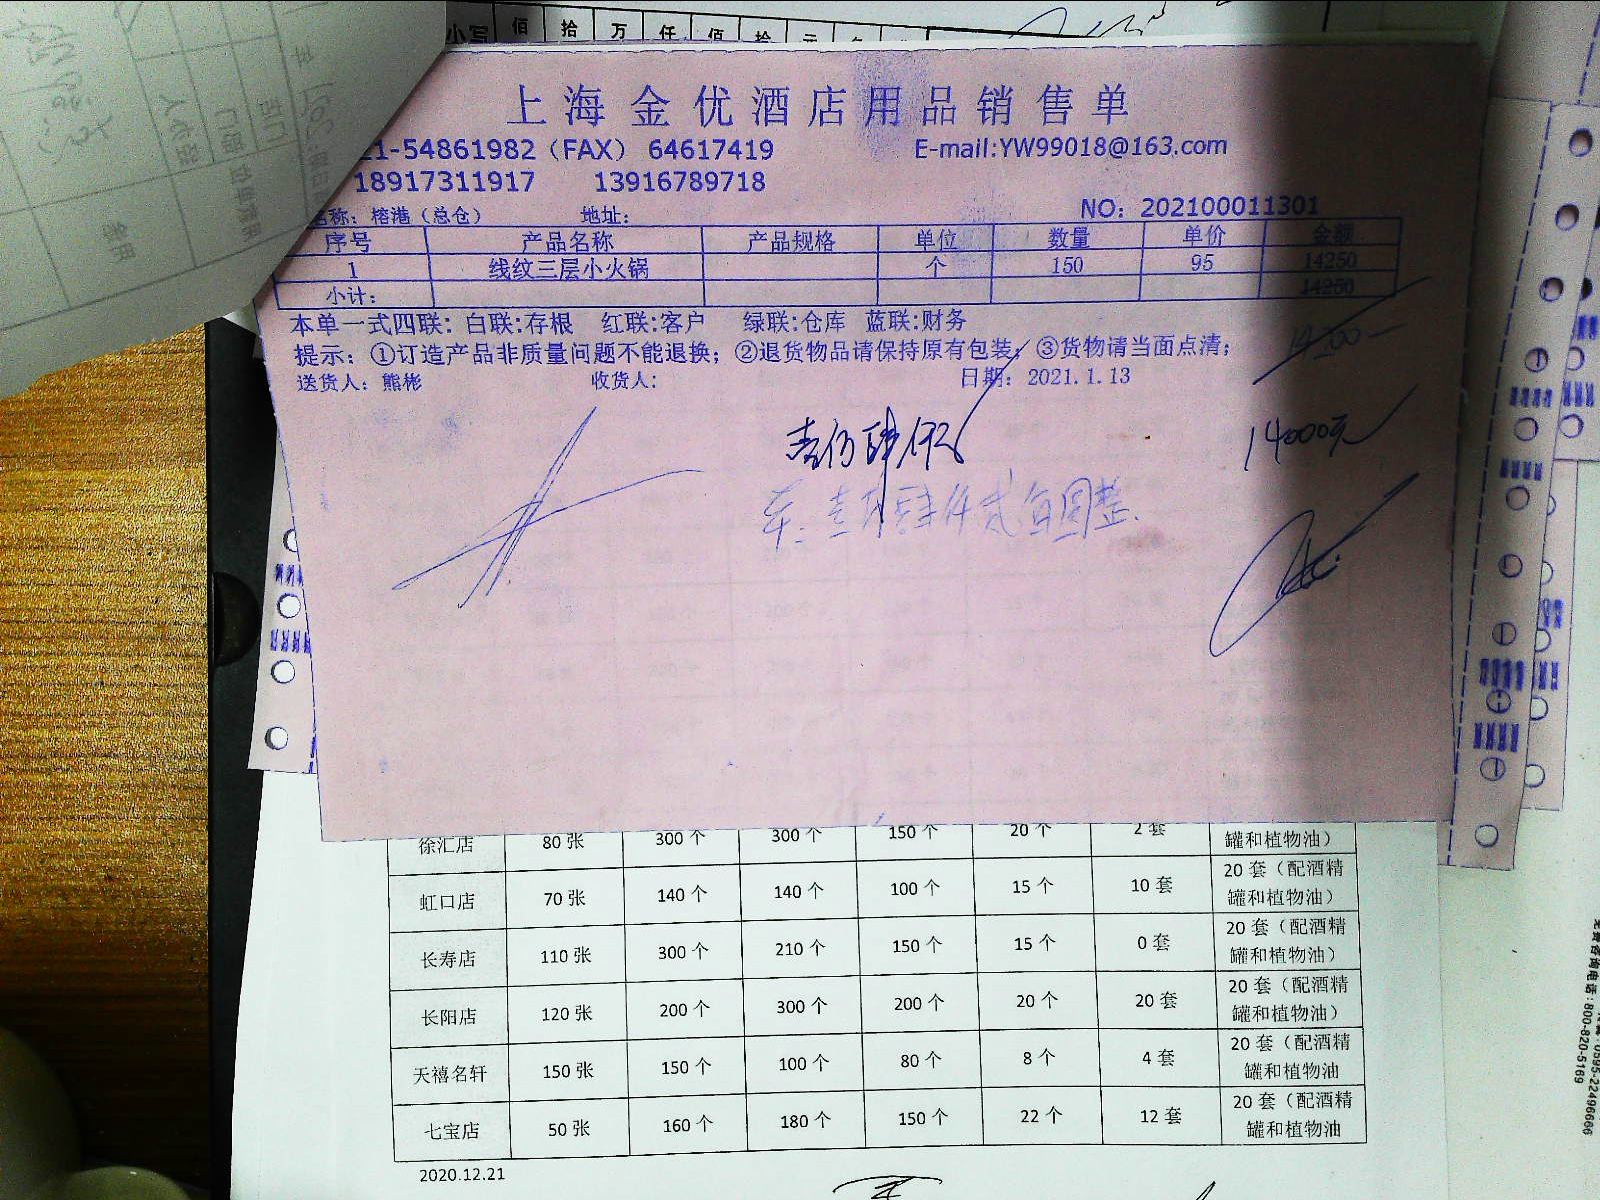 小写 佰 拾 万 仟 佰 拾 元
上海金优酒店用品销售单
21-54861982（FAX） 64617419 E-mail:YW99018@163.com
18917311917 13916789718
名称：榕港（总仓） 地址： NO：202100011301
序号 产品名称 产品规格 单位 数量 单价 金额
1 线纹三层小火锅 个 150 95 14250
小计： 14250
本单一式四联：白联:存根 红联:客户 绿联:仓库 蓝联:财务
提示：①订造产品非质量问题不能退换；②退货物品请保持原有包装；③货物请当面点清；
送货人：熊彬 收货人： 日期：2021.1.13
14000元
徐汇店 80 张 300 个 300 个 150 个 20 个 2 套 罐和植物油）
虹口店 70 张 140 个 140 个 100 个 15 个 10 套 20 套（配酒精罐和植物油）
长寿店 110 张 300 个 210 个 150 个 15 个 0 套 20 套（配酒精罐和植物油）
长阳店 120 张 200 个 300 个 200 个 20 个 20 套 20 套（配酒精罐和植物油）
天禧名轩 150 张 150 个 100 个 80 个 8 个 4 套 20 套（配酒精罐和植物油
七宝店 50 张 160 个 180 个 150 个 22 个 12 套 20 套（配酒精罐和植物油
2020.12.21
免费咨询电话:800-820-5169
0595-22496666